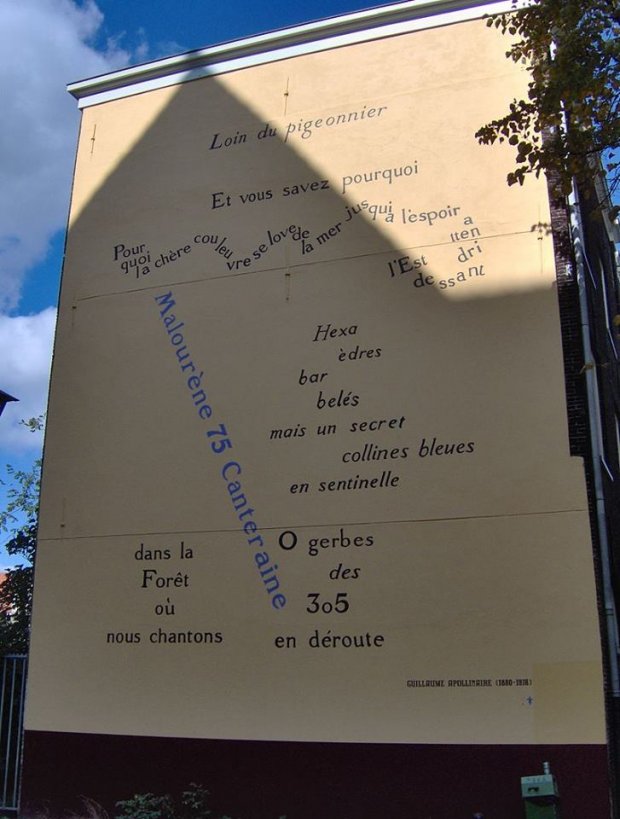 Loin du pigeonnier
Et vous savez pourquoi
Pourquoi la chère couleuvre se love de la mer jusqu'à l'espoir attendrissant de l'Est
Malourène 75 Canteraine
Hexa
èdres
bar
belés
mais un secret
collines bleues
en sentinelle
dans la
Forêt
où
nous chantons
O gerbes
des
305
en déroute
GUILLAUME APOLLINAIRE (1880-1918)